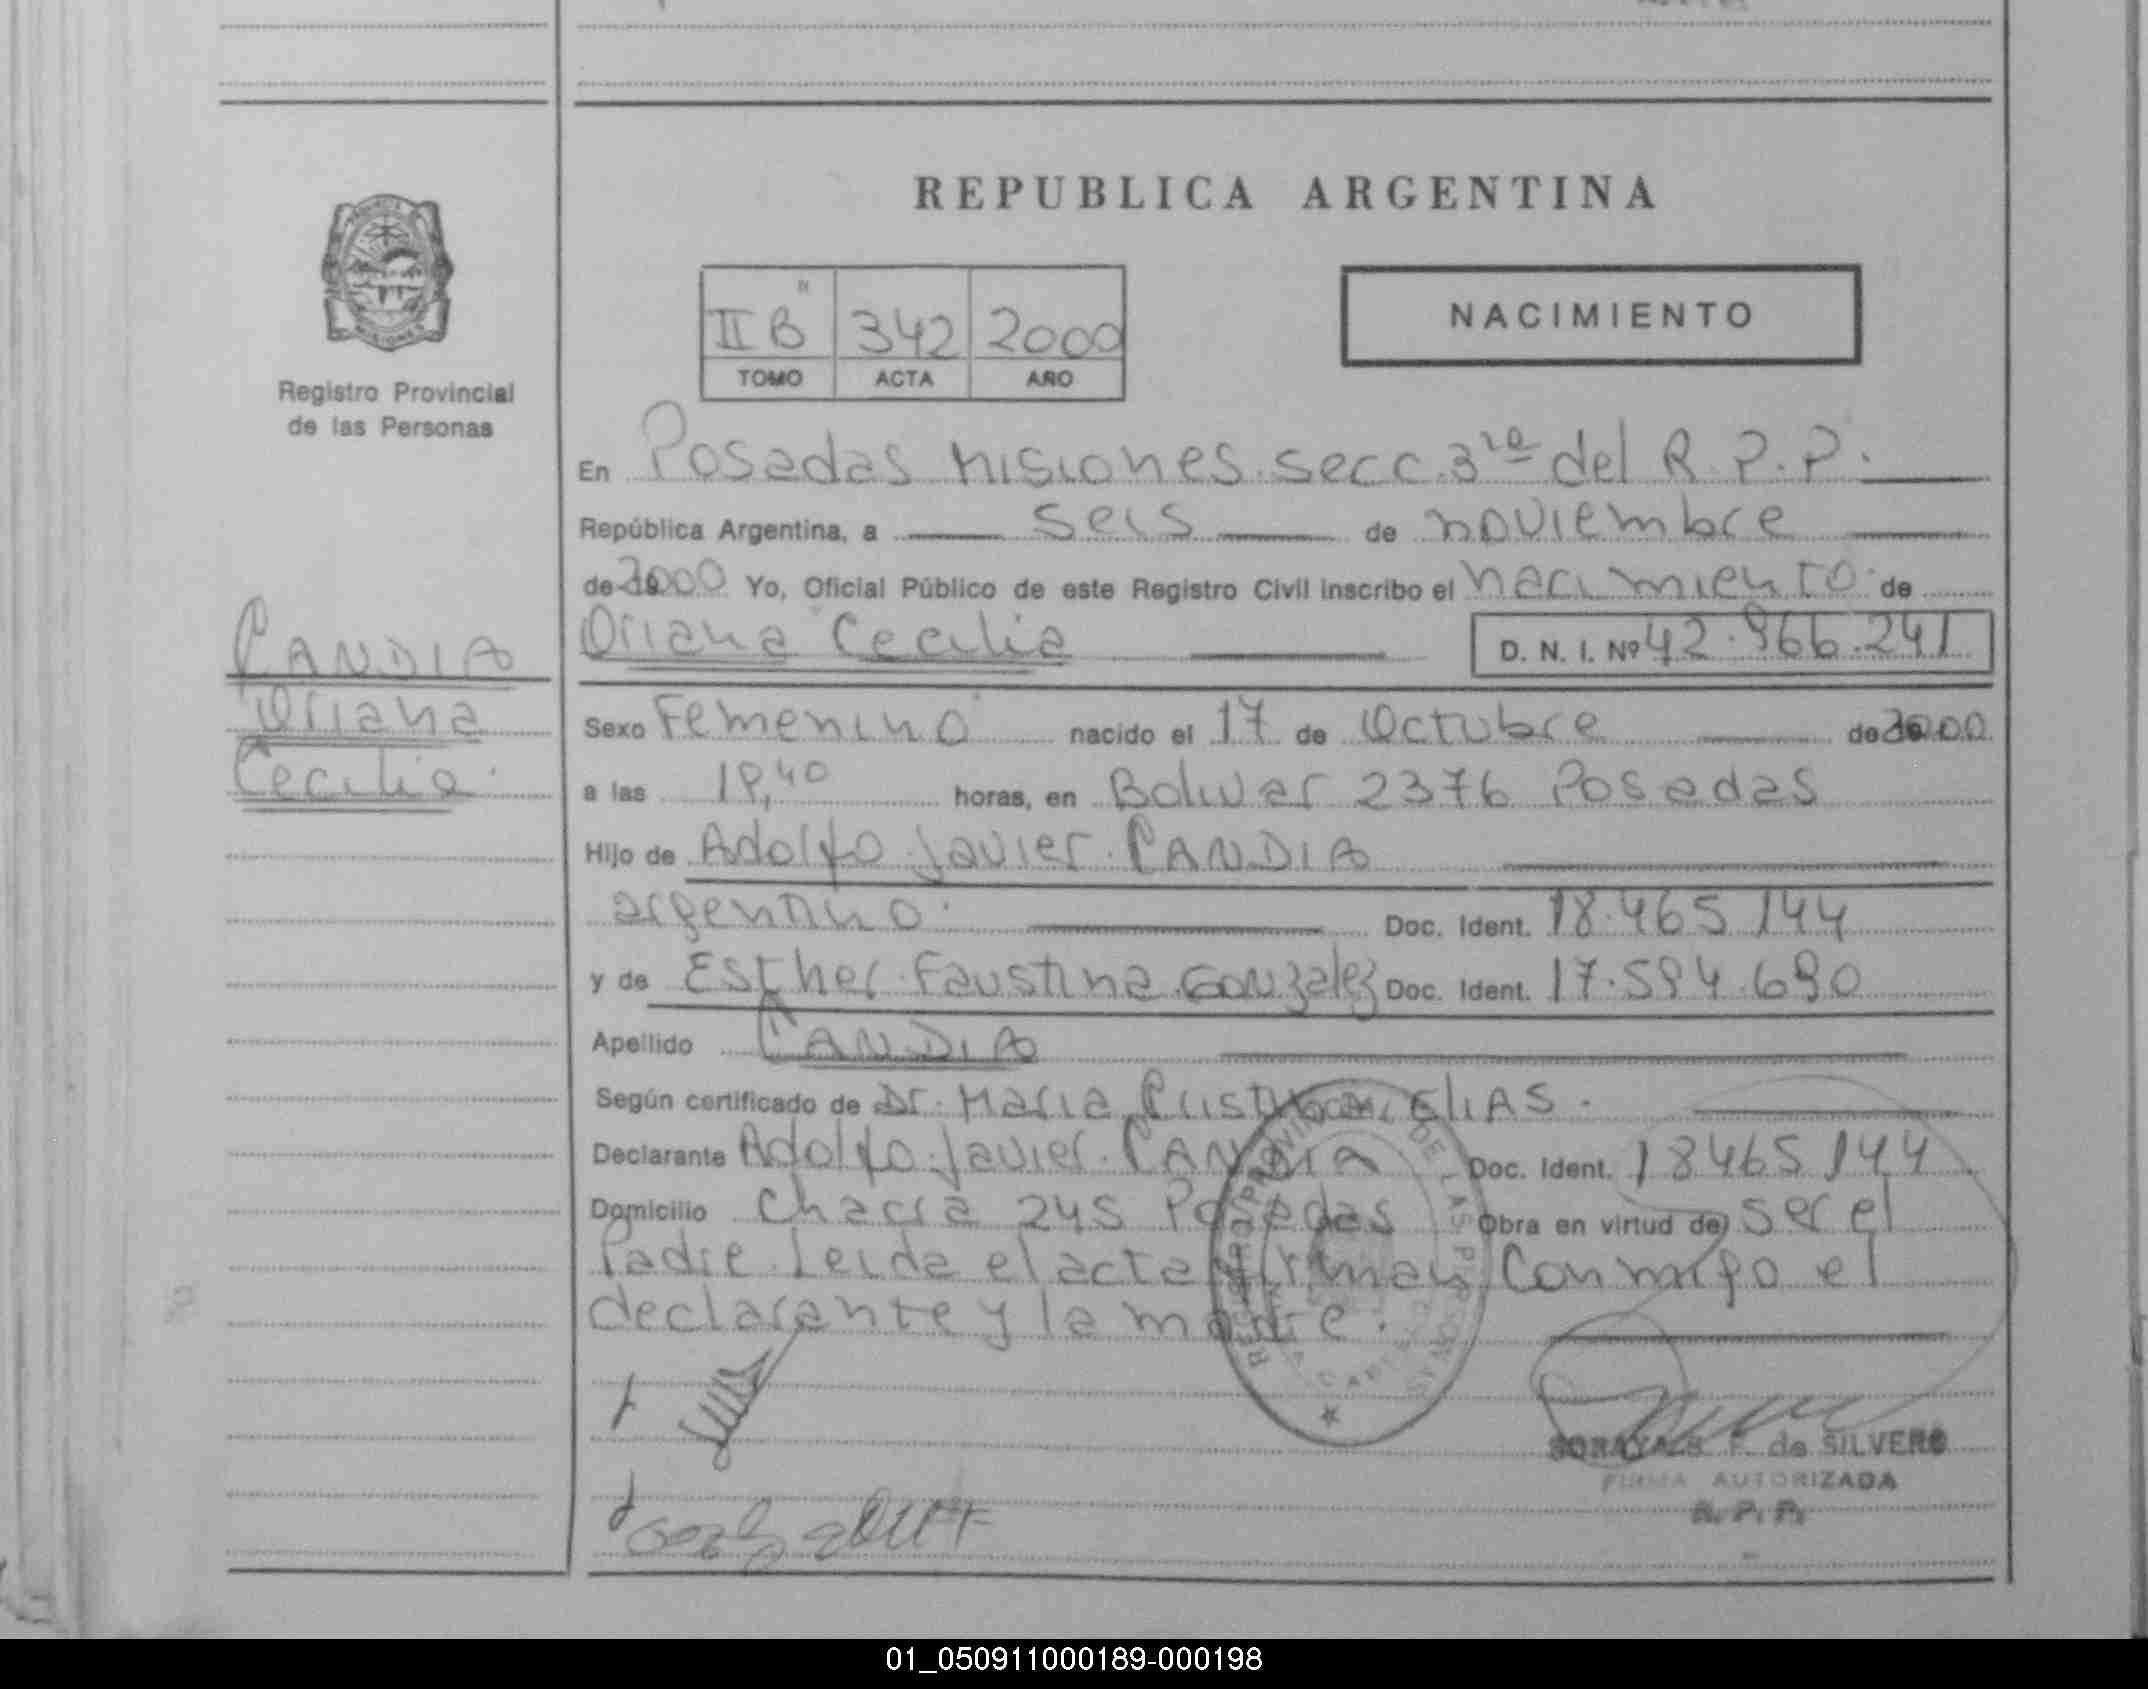 REPUBLICA ARGENTINA
Registro Provincial
de las Personas
II B 342 2000
TOMO ACTA AÑO
NACIMIENTO
En Posadas Misiones secc. 3ra del R.P.P.
República Argentina, a seis de noviembre
de 2000 Yo, Oficial Público de este Registro Civil inscribo el nacimiento de
Oriana Cecilia D. N. I. Nº 42.966.241
CANDIA
Oriana
Cecilia
Sexo Femenino nacido el 17 de Octubre de 2000
a las 19,40 horas, en Bolivar 2376 Posadas
Hijo de Adolfo Javier CANDIA
argentino Doc. Ident. 18.465144
y de Esther Faustina Gonzalez Doc. Ident. 17.594.690
Apellido CANDIA
Según certificado de Dr. Maria Cristina ELIAS.
Declarante Adolfo Javier CANDIA Doc. Ident. 18465144
Domicilio Chacra 245 Posadas Obra en virtud de ser el
Padre. Leida el acta firman conmigo el
declarante y la madre.
REGISTRO PROVINCIAL DE LAS PERSONAS
de SILVERO
FIRMA AUTORIZADA
R. P. P.
01_050911000189-000198